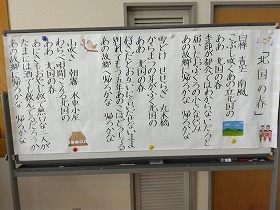 「北国の春」
白樺 青空 南風
こぶし咲くあの丘北国の
ああ 北国の春
季節が都会ではわからないだろと
届いたおふくろの小さな包み
あの故郷へ 帰ろかな 帰ろかな
雪どけ せせらぎ 丸木橋
からまつの芽がふく北国の
ああ 北国の春
好きだとおたがいに言いだせないまま
別れてもう五年あのこはどうしてる
あの故郷へ 帰ろかな 帰ろかな
山吹き 朝霧 水車小屋
わらべ唄聞こえる北国の
ああ 北国の春
あにきもおやじ似で無口な二人が
たまには酒でも飲んでるだろうか
あの故郷へ 帰ろかな 帰ろかな